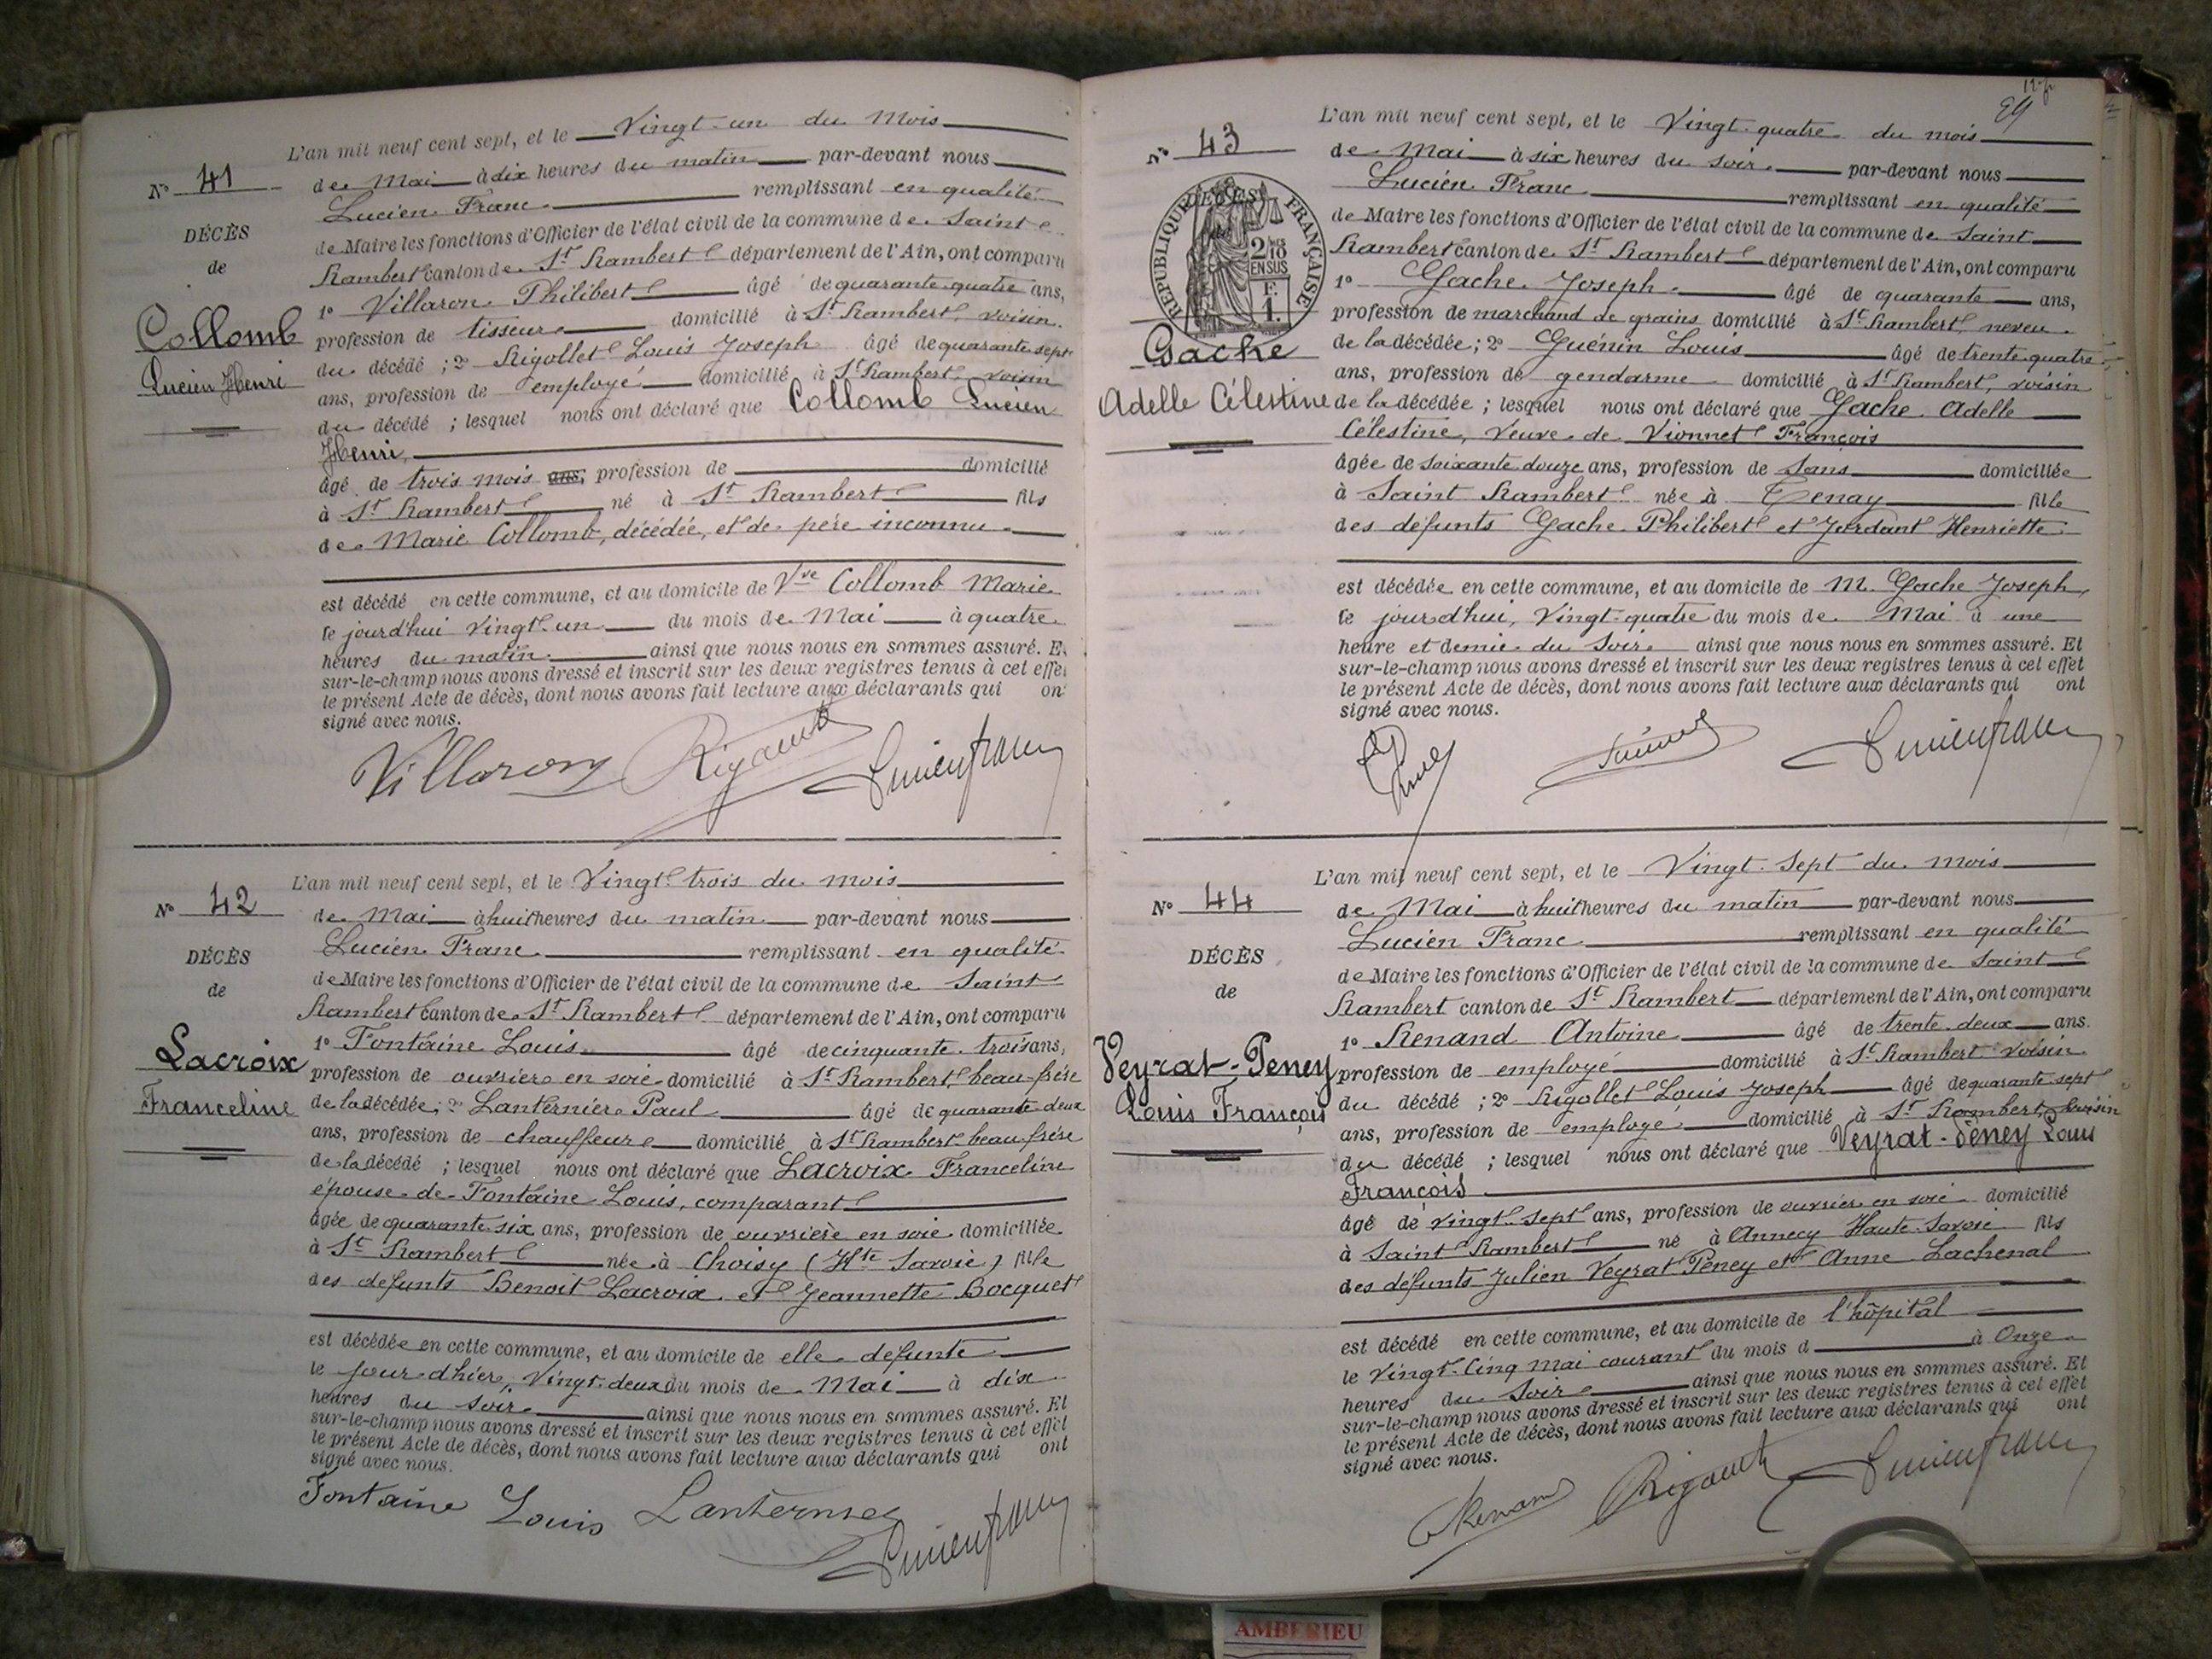 L'an mil neuf cent sept, et le Vingt-un du Mois
N° 41
de Mai à dix heures du matin par-devant nous
Lucien Franc remplissant en qualité
DÉCÈS
de Maire les fonctions d'Officier de l'état civil de la commune de Saint
de
Rambert canton de St Rambert département de l'Ain, ont comparu
1° Villaron Philibert âgé de quarante quatre ans,
Collomb
profession de tisseur domicilié à St Rambert, voisin
du décédé ; 2° Rigollet Louis Joseph âgé de quarante sept
Lucien Henri
ans, profession de employé domicilié à St Rambert voisin
du décédé ; lesquel nous ont déclaré que Collomb Lucien
Henri,
âgé de trois mois ans, profession de domicilié
à St Rambert né à St Rambert fils
de Marie Collomb, décédée, et de père inconnu
est décédé en cette commune, et au domicile de Vve Collomb Marie
le jourd'hui vingt-un du mois de Mai à quatre
heures du matin ainsi que nous nous en sommes assuré. E
sur-le-champ nous avons dressé et inscrit sur les deux registres tenus à cet effe
le présent Acte de décès, dont nous avons fait lecture aux déclarants qui on
signé avec nous.
Villaron
L'an mil neuf cent sept, et le Vingt trois du mois
N° 42
de Mai à huit heures du matin par-devant nous
Lucien Franc remplissant en qualité
DÉCÈS
de Maire les fonctions d'Officier de l'état civil de la commune de Saint
de
Rambert canton de St Rambert département de l'Ain, ont comparu
1° Fontaine Louis âgé de cinquante trois ans,
Lacroix
profession de ouvrier en soie domicilié à St Rambert, beau-frère
Franceline
de la décédée ; 2° Lanternier Paul âgé de quarante deux
ans, profession de chauffeur domicilié à St Rambert beau-frère
de la décédé ; lesquel nous ont déclaré que Lacroix Franceline
épouse de Fontaine Louis, comparant
âgée de quarante six ans, profession de ouvrière en soie domiciliée
à St Rambert née à Choisy (Hte Savoie) fille
des défunts Benoit Lacroix et Jeannette Bocquet
est décédée en cette commune, et au domicile de elle défunte
le jour d'hier, Vingt-deux du mois de Mai à dix
heures du soir ainsi que nous nous en sommes assuré. Et
sur-le-champ nous avons dressé et inscrit sur les deux registres tenus à cet effet
le présent Acte de décès, dont nous avons fait lecture aux déclarants qui ont
signé avec nous.
Fontaine Louis Lanternier
L'an mil neuf cent sept, et le Vingt-quatre du mois
N° 43
de Mai à six heures du soir par-devant nous
Lucien Franc remplissant en qualité
RÉPUBLIQUE FRANÇAISE
de Maire les fonctions d'Officier de l'état civil de la commune de Saint
2/10 EN SUS
Rambert canton de St Rambert département de l'Ain, ont comparu
F. 1.
1° Gache Joseph âgé de quarante ans,
profession de marchand de grains domicilié à St Rambert, neveu
Gache
de la décédée ; 2° Guénin Louis âgé de trente quatre
ans, profession de gendarme domicilié à St Rambert, voisin
Adelle Célestine
de la décédée ; lesquel nous ont déclaré que Gache Adelle
Célestine, Veuve de Vionnet François
âgée de soixante douze ans, profession de Sans domiciliée
à Saint Rambert née à Tenay fille
des défunts Gache Philibert et Jordant Henriette
est décédée en cette commune, et au domicile de M. Gache Joseph,
le jour d'hui, Vingt-quatre du mois de Mai à une
heure et demie du Soir ainsi que nous nous en sommes assuré. Et
sur-le-champ nous avons dressé et inscrit sur les deux registres tenus à cet effet
le présent Acte de décès, dont nous avons fait lecture aux déclarants qui ont
signé avec nous.
L'an mil neuf cent sept, et le Vingt-sept du mois
N° 44
de Mai à huit heures du matin par-devant nous
Lucien Franc remplissant en qualité
DÉCÈS
de Maire les fonctions d'Officier de l'état civil de la commune de Saint
de
Rambert canton de St Rambert département de l'Ain, ont comparu
1° Renand Antoine âgé de trente-deux ans.
Veyrat-Peney
profession de employé domicilié à St Rambert voisin
Louis François
du décédé ; 2° Rigollet Louis Joseph âgé de quarante sept
ans, profession de employé domicilié à St Rambert, voisin
du décédé ; lesquel nous ont déclaré que Veyrat-Peney Louis
François
âgé de vingt-sept ans, profession de ouvrier en soie domicilié
à Saint Rambert né à Annecy Haute-Savoie fils
des défunts Julien Veyrat Peney et Anne Lachenal
est décédé en cette commune, et au domicile de l'hôpital
le Vingt-Cinq Mai courant du mois d à Onze
heures du Soir ainsi que nous nous en sommes assuré. Et
sur-le-champ nous avons dressé et inscrit sur les deux registres tenus à cet effet
le présent Acte de décès, dont nous avons fait lecture aux déclarants qui ont
signé avec nous.
AMBERIEU